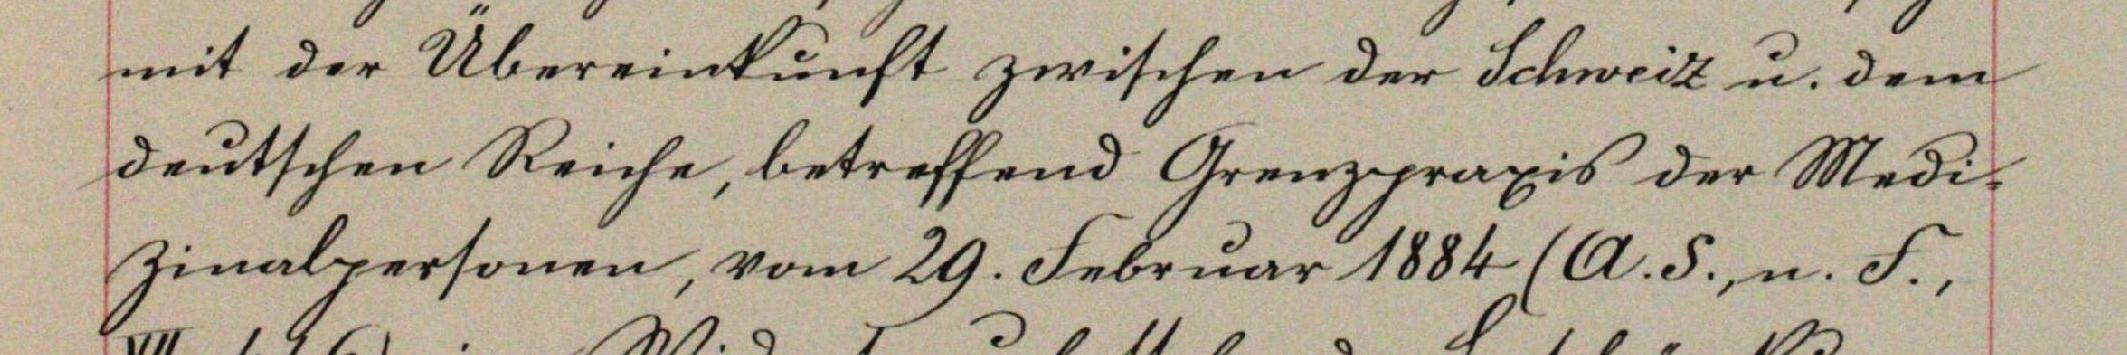 mit der Übereinkunft zwischen der Schweiz u. dem
deutschen Reiche, betreffend Grenzpraxis der Medi-
zinalpersonen, vom 29. Februar 1884 (A. S., n. F.,